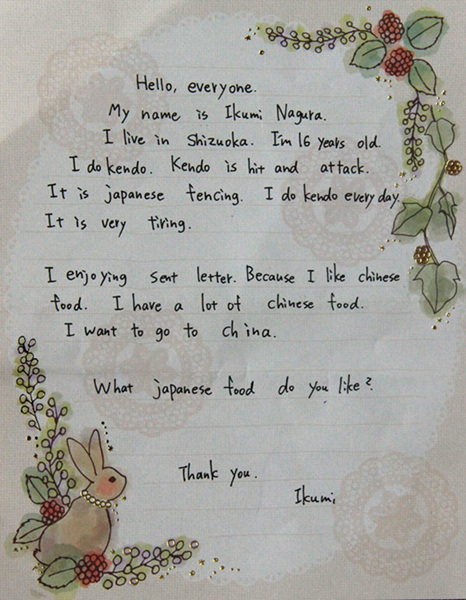 Hello, everyone.
My name is Ikumi Nagura.
I live in Shizuoka. I'm 16 years old.
I do kendo. Kendo is hit and attack.
It is japanese fencing. I do kendo every day.
It is very tiring.
I enjoying sent letter. Because I like chinese
food. I have a lot of chinese food.
I want to go to china.
What japanese food do you like?
Thank you.
Ikumi